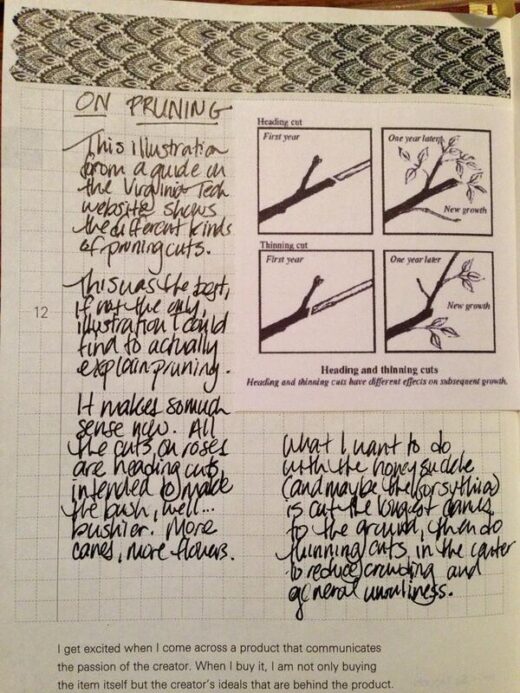 ON PRUNING
This illustration
from a guide on
the Virginia Tech
website shows
the different kinds
of pruning cuts.
This was the best,
if not the only,
illustration I could
find to actually
explain pruning.
It makes so much
sense now. All
the cuts on roses
are heading cuts,
intended to make
the bush, well...
bushier. More
canes, more flowers.
12
Heading cut
First year
One year later
New growth
Thinning cut
First year
One year later
New growth
Heading and thinning cuts
Heading and thinning cuts have different effects on subsequent growth.
What I want to do
with the honeysuckle
(and maybe the forsythia)
is cut the longest canes
to the ground, then do
thinning cuts in the center
to reduce crowding and
general unruliness.
I get excited when I come across a product that communicates
the passion of the creator. When I buy it, I am not only buying
the item itself but the creator's ideals that are behind the product.